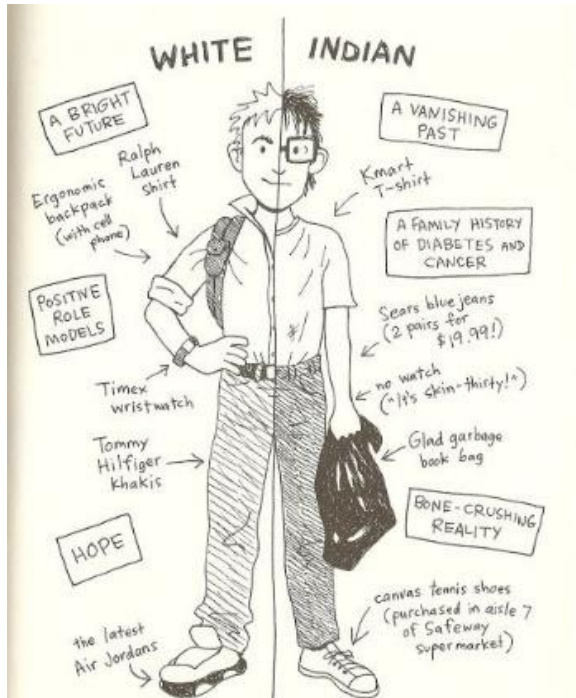 WHITE
INDIAN
A BRIGHT
FUTURE
Ralph
Lauren
Shirt
Ergonomic
backpack
(with cell
phone)
POSITIVE
ROLE
MODELS
Timex
wristwatch
Tommy
Hilfiger
Khakis
HOPE
the latest
Air Jordans
A VANISHING
PAST
Kmart
T-shirt
A FAMILY HISTORY
OF DIABETES AND
CANCER
Sears blue jeans
(2 pairs for
$19.99!)
no watch
("It's skin-thirty!")
Glad garbage
book bag
BONE-CRUSHING
REALITY
canvas tennis shoes
(purchased in aisle 7
of Safeway
supermarket)